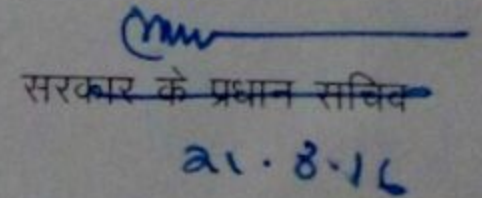 सरकार के प्रधान सचिव
21.8.16